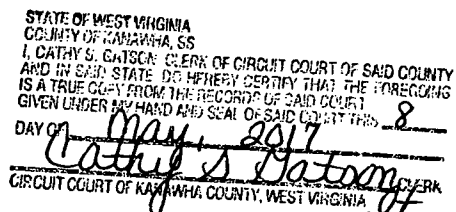 STATE OF WEST VIRGINIA
COUNTY OF KANAWHA, SS
I, CATHY S. GATSON CLERK OF CIRCUIT COURT OF SAID COUNTY
AND IN SAID STATE, DO HEREBY CERTIFY THAT THE FOREGOING
IS A TRUE COPY FROM THE RECORDS OF SAID COURT
GIVEN UNDER MY HAND AND SEAL OF SAID COURT THIS 8
DAY OF May, 2017
Cathy S Gatson CLERK
CIRCUIT COURT OF KANAWHA COUNTY, WEST VIRGINIA